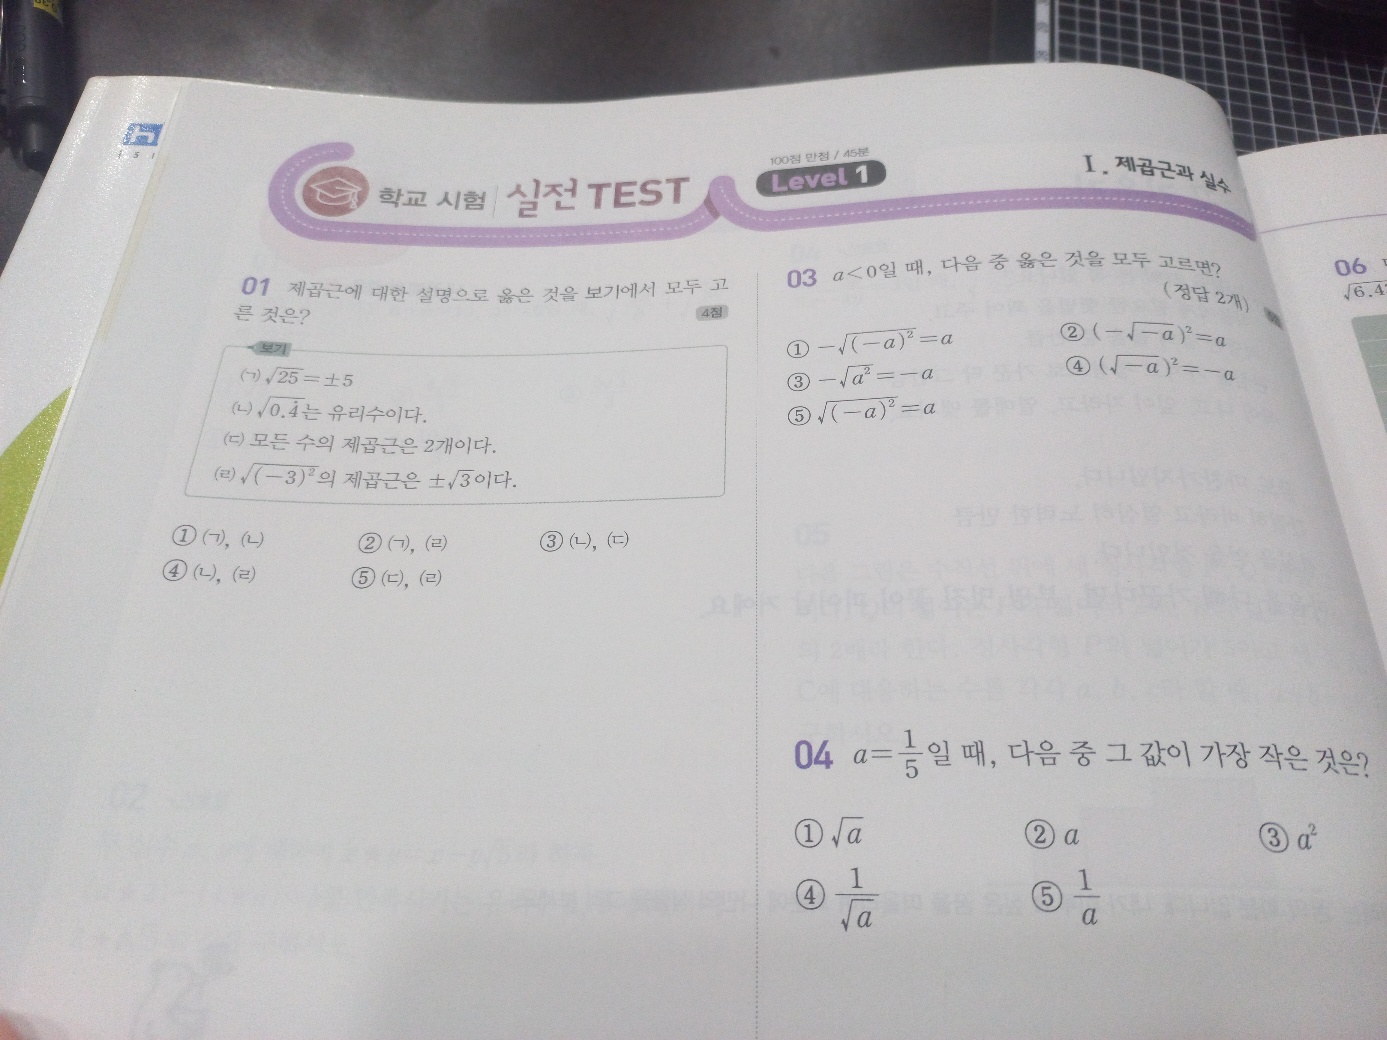 학교 시험 실전 TEST
100점 만점 / 45분
Level 1
Ⅰ. 제곱근과 실수
01 제곱근에 대한 설명으로 옳은 것을 보기에서 모두 고
른 것은?
4점
보기
㈀ √25=±5
㈁ √0.4̇는 유리수이다.
㈂ 모든 수의 제곱근은 2개이다.
㈃ √(−3)²의 제곱근은 ±√3이다.
① ㈀, ㈁ ② ㈀, ㈃ ③ ㈁, ㈂
④ ㈁, ㈃ ⑤ ㈂, ㈃
03 a<0일 때, 다음 중 옳은 것을 모두 고르면?
(정답 2개)
① −√(−a)²=a ② (−√−a)²=a
③ −√a²=−a ④ (√−a)²=−a
⑤ √(−a)²=a
04 a=1/5일 때, 다음 중 그 값이 가장 작은 것은?
① √a ② a ③ a²
④ 1/√a ⑤ 1/a
06